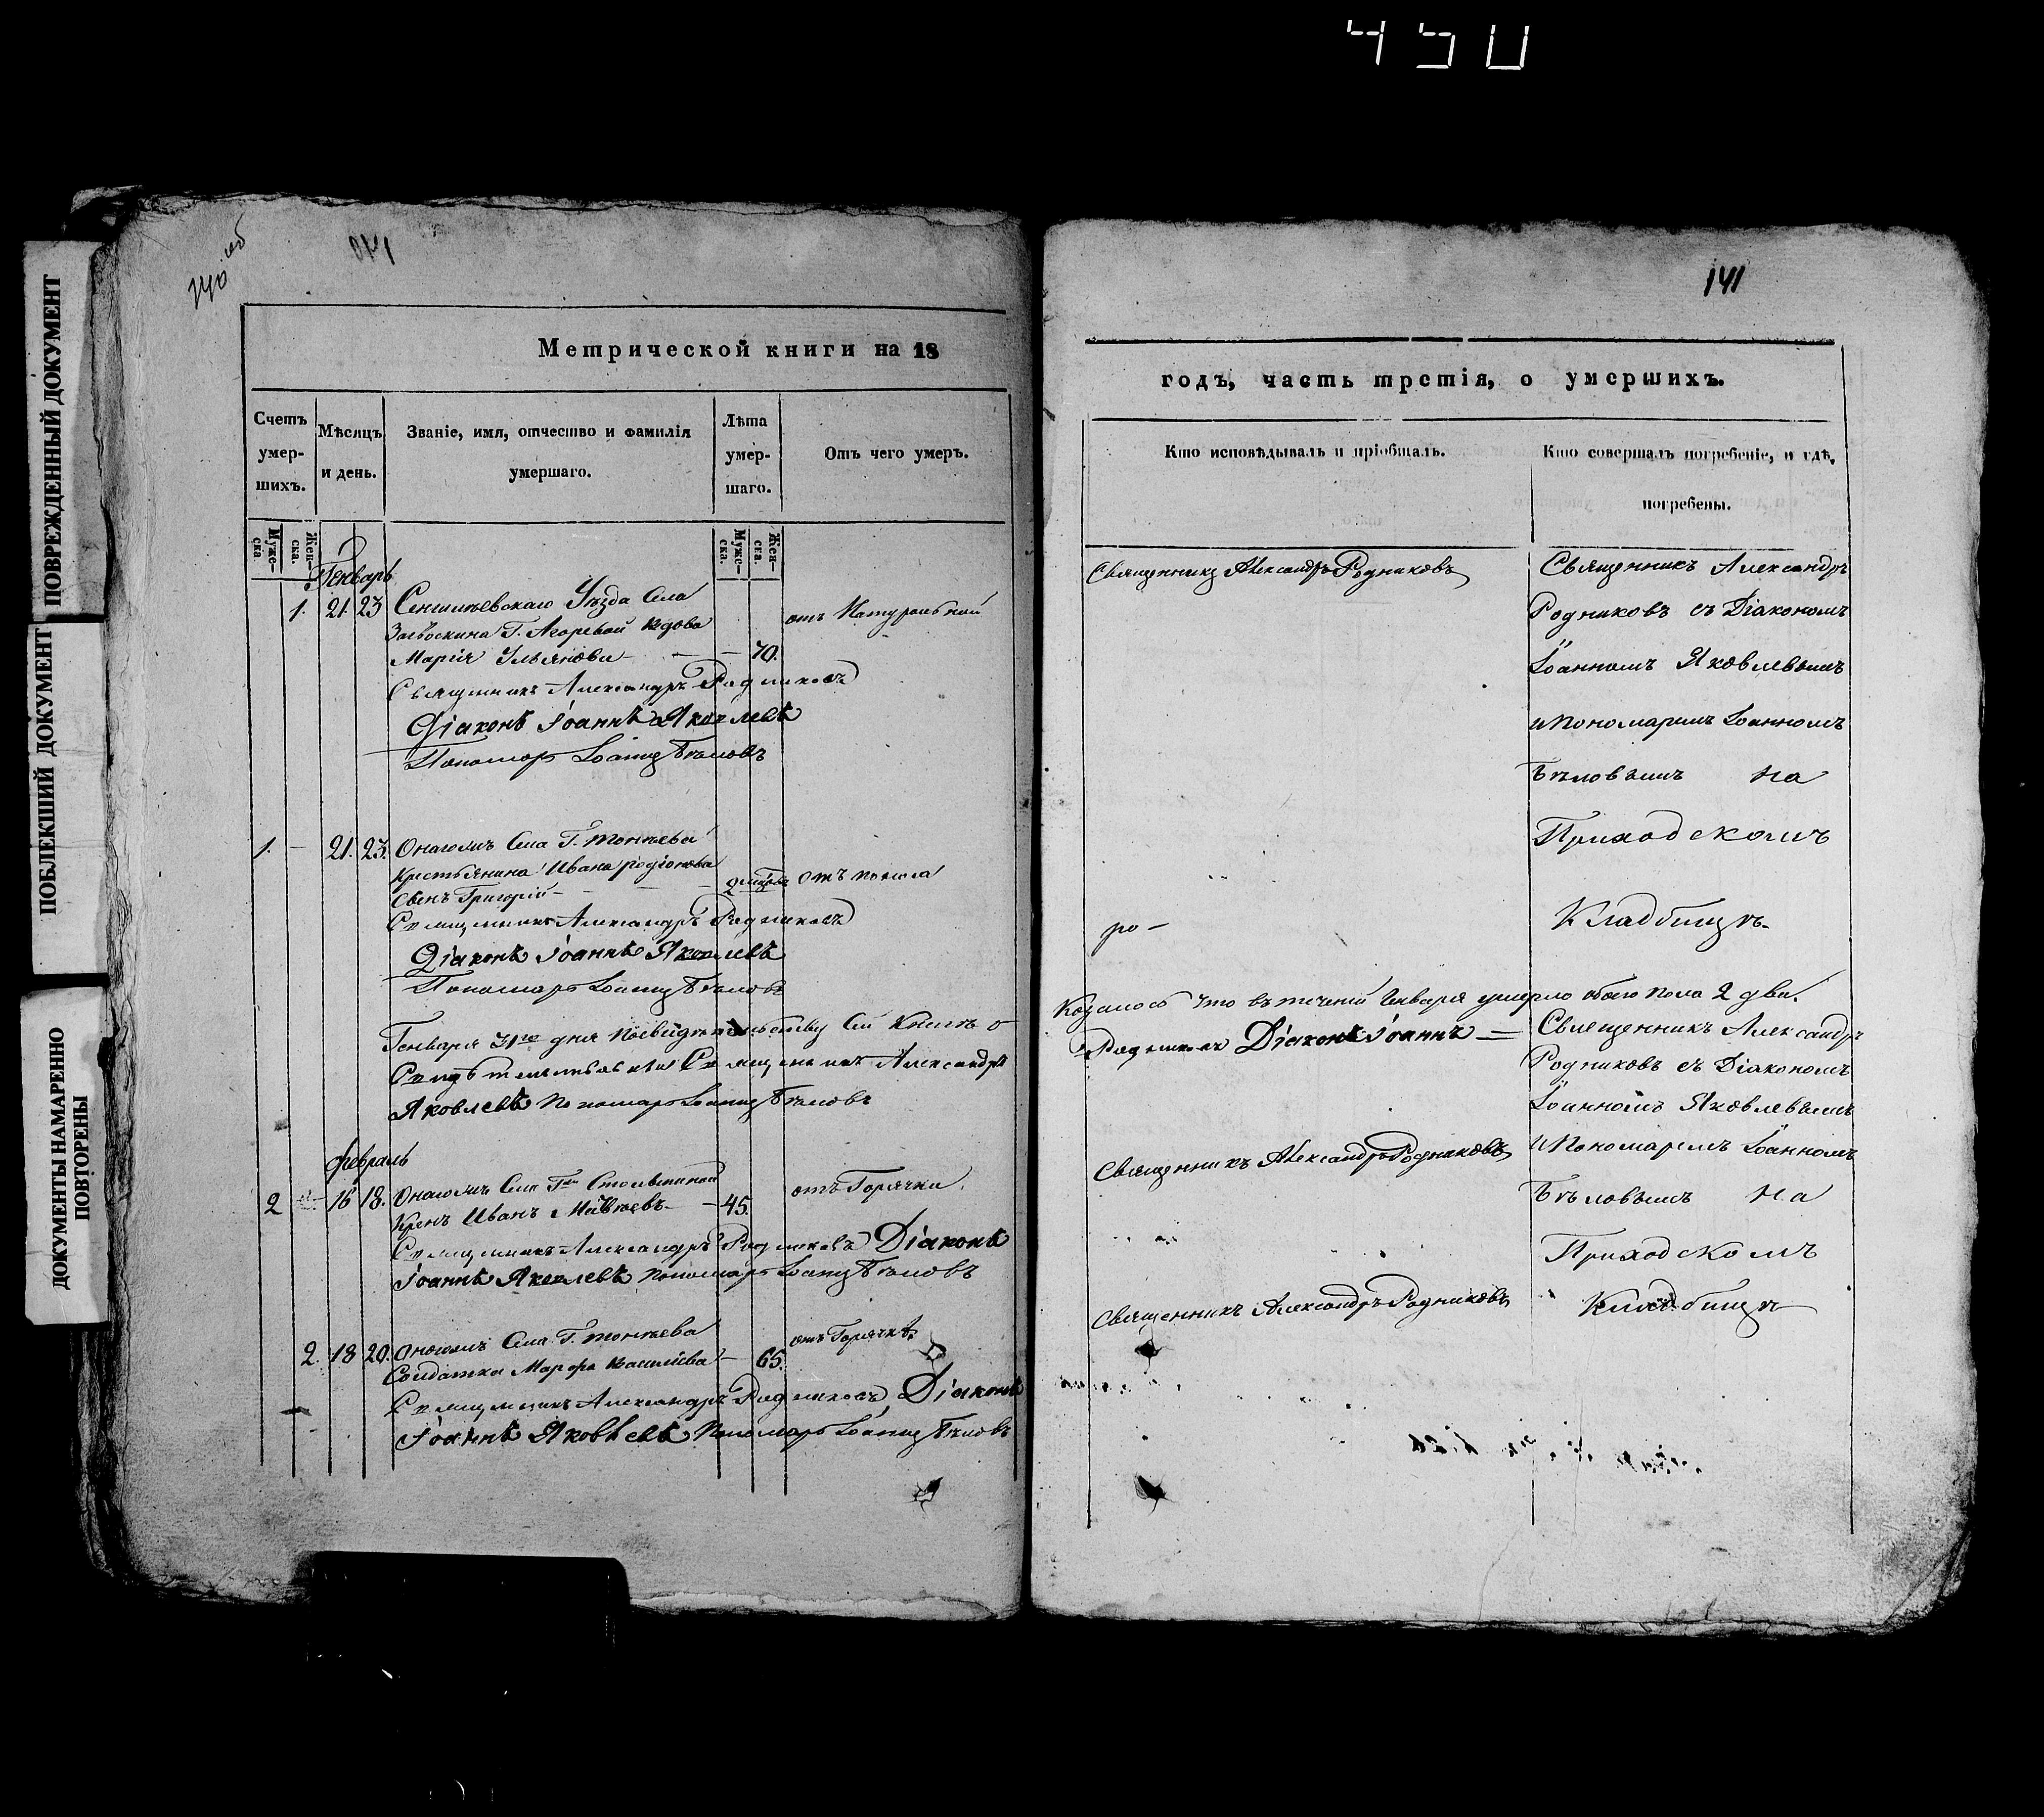 450
140 об
141
ПОВРЕЖДЕННЫЙ ДОКУМЕНТ
ПОБЛЕКШИЙ ДОКУМЕНТ
ДОКУМЕНТЫ НАМАРЕННО
ПОВТОРЕНЫ
Метрической книги на 18
Счетъ умер-шихъ.
Мѣсяцъ и день.
Званіе, имя, отчество и фамилія умершаго.
Лѣта умер-шаго.
Отъ чего умеръ.
Мужес-ка.
Женс-ка.
Мужес-ка.
Женс-ка.
Генварь
1. 21. 23 Уѣзда Села
вдова отъ Натуральной
Марія Ульянова — — 70.
Священникъ Александръ Родниковъ
Діаконъ Іоаннъ Яковлевъ
Пономарь Іоаннъ Бѣловъ
1. — 21. 23. Онагожъ Села Г. Тонѣева
Крестьянина Ивана Родіонова
Сынъ Григорій — отъ поноса
Священникъ Александръ Родниковъ
Діаконъ Іоаннъ Яковлевъ
Пономарь Іоаннъ Бѣловъ
Генваря 31го дня по свидѣтельству сей Книги о
Священникъ Александръ
Яковлевъ Пономарь Іоаннъ Бѣловъ
Февраль
2 16 18. Онагожъ Села Гжи Столыпиной отъ Горячки.
Кренъ Иванъ — 45.
Священникъ Александръ Родниковъ Діаконъ
Іоаннъ Яковлевъ Пономарь Іоаннъ Бѣловъ
2. 18 20. Онагожъ Села Г. Тонѣева отъ Горячки
Солдатка Марфа Васильева — 65.
Священникъ Александръ Родниковъ Діаконъ
Іоаннъ Яковлевъ Пономарь Іоаннъ Бѣловъ
годъ, часть третія, о умершихъ.
Кто исповѣдывалъ и пріобщалъ.
Кто совершалъ погребеніе, и гдѣ погребены.
Священникъ Александръ Родниковъ
Священникъ Александръ
Родниковъ съ Діакономъ
Іоанномъ Яковлевымъ
и Пономаремъ Іоанномъ
Бѣловымъ на
Приходскомъ
Кладбищѣ.
казалось что въ теченіи Генваря умерло обоего пола 2 два.
Родниковъ Діаконъ Іоаннъ —
Священникъ Александръ
Родниковъ съ Діакономъ
Іоанномъ Яковлевымъ
Священникъ Александръ Родниковъ
и Пономаремъ Іоанномъ
Бѣловымъ на
Приходскомъ
Священникъ Александръ Родниковъ
Кладбищѣ